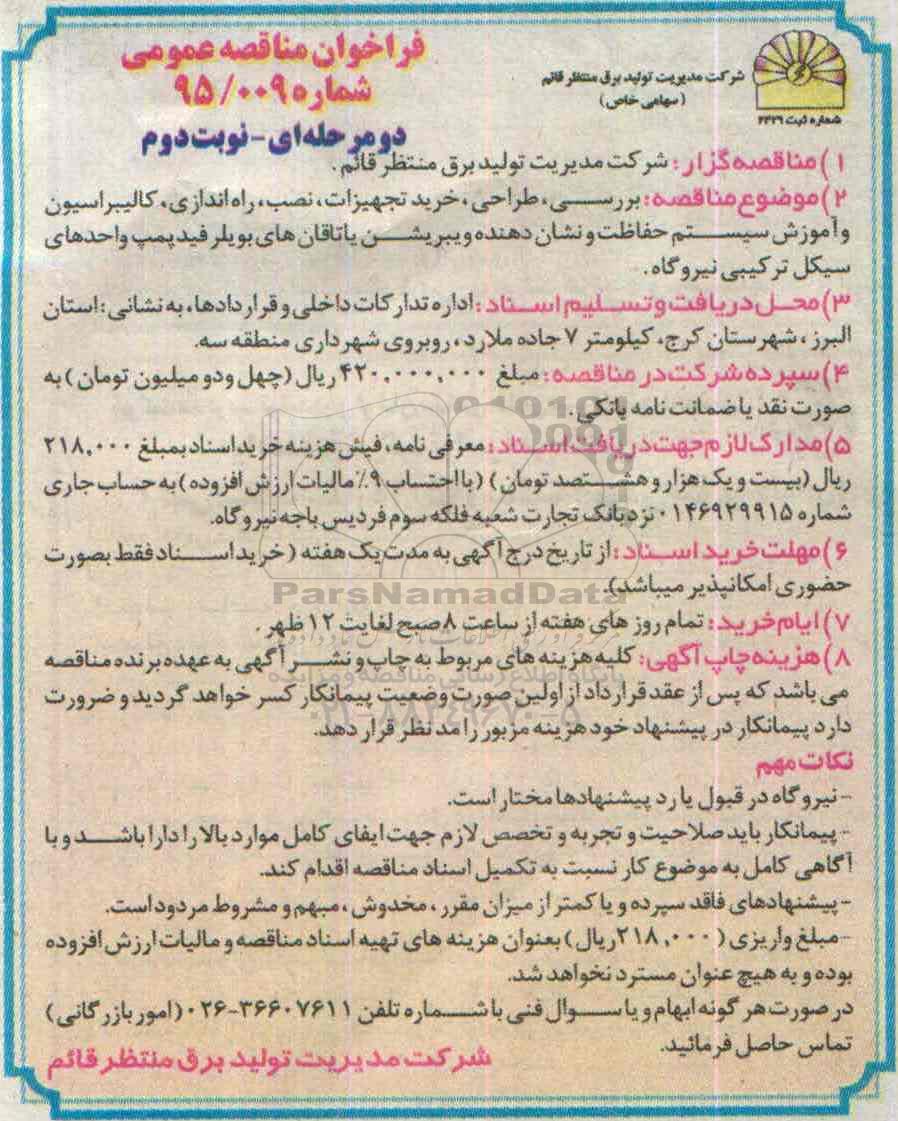 فراخوان مناقصه عمومی
شماره ۹۵/۰۰۹
دو مرحله‌ای - نوبت دوم
شرکت مدیریت تولید برق منتظر قائم
(سهامی خاص)
شماره ثبت ۲۴۲۹
۱) مناقصه گزار: شرکت مدیریت تولید برق منتظر قائم.
۲) موضوع مناقصه: بررسی، طراحی، خرید تجهیزات، نصب، راه اندازی، کالیبراسیون
و آموزش سیستم حفاظت و نشان دهنده ویبریشن یاتاقان های بویلر فید پمپ واحدهای
سیکل ترکیبی نیروگاه.
۳) محل دریافت و تسلیم اسناد: اداره تدارکات داخلی و قراردادها، به نشانی: استان
البرز، شهرستان کرج، کیلومتر ۷ جاده ملارد، روبروی شهرداری منطقه سه.
۴) سپرده شرکت در مناقصه: مبلغ ۴۲۰,۰۰۰,۰۰۰ ریال (چهل ودو میلیون تومان) به
صورت نقد یا ضمانت نامه بانکی.
۵) مدارک لازم جهت دریافت اسناد: معرفی نامه، فیش هزینه خرید اسناد بمبلغ ۲۱۸,۰۰۰
ریال (بیست و یک هزار و هشتصد تومان) (با احتساب ۹٪ مالیات ارزش افزوده) به حساب جاری
شماره ۰۱۴۶۹۲۹۹۱۵ نزد بانک تجارت شعبه فلکه سوم فردیس باجه نیروگاه.
۶) مهلت خرید اسناد: از تاریخ درج آگهی به مدت یک هفته (خرید اسناد فقط بصورت
حضوری امکانپذیر میباشد).
ParsNamadData
۷) ایام خرید: تمام روز های هفته از ساعت ۸ صبح لغایت ۱۲ ظهر.
۸) هزینه چاپ آگهی: کلیه هزینه های مربوط به چاپ و نشر آگهی به عهده برنده مناقصه
پایگاه اطلاع رسانی مناقصه و مزایده
می باشد که پس از عقد قرارداد از اولین صورت وضعیت پیمانکار کسر خواهد گردید و ضرورت
دارد پیمانکار در پیشنهاد خود هزینه مزبور را مد نظر قرار دهد.
نکات مهم
- نیروگاه در قبول یا رد پیشنهادها مختار است.
- پیمانکار باید صلاحیت و تجربه و تخصص لازم جهت ایفای کامل موارد بالا را دارا باشد و با
آگاهی کامل به موضوع کار نسبت به تکمیل اسناد مناقصه اقدام کند.
- پیشنهادهای فاقد سپرده و یا کمتر از میزان مقرر، مخدوش، مبهم و مشروط مردود است.
- مبلغ واریزی (۲۱۸,۰۰۰ ریال) بعنوان هزینه های تهیه اسناد مناقصه و مالیات ارزش افزوده
بوده و به هیچ عنوان مسترد نخواهد شد.
در صورت هر گونه ابهام و یا سوال فنی با شماره تلفن ۳۶۶۰۷۶۱۱-۰۲۶ (امور بازرگانی)
تماس حاصل فرمائید.
شرکت مدیریت تولید برق منتظر قائم